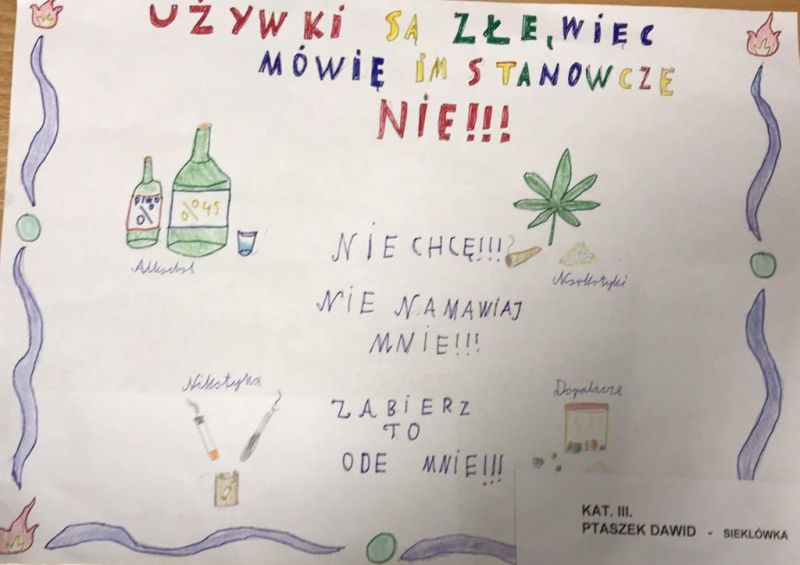 UŻYWKI SĄ ZŁE, WIĘC
MÓWIĘ IM STANOWCZE
NIE!!!
PIWO
%
%45
Alkohol
NIE CHCĘ!!!
Narkotyki
NIE NAMAWIAJ
MNIE!!!
Nikotyka
Dopalacze
ZABIERZ
TO
ODE MNIE!!!
KAT. III.
PTASZEK DAWID - SIEKLÓWKA